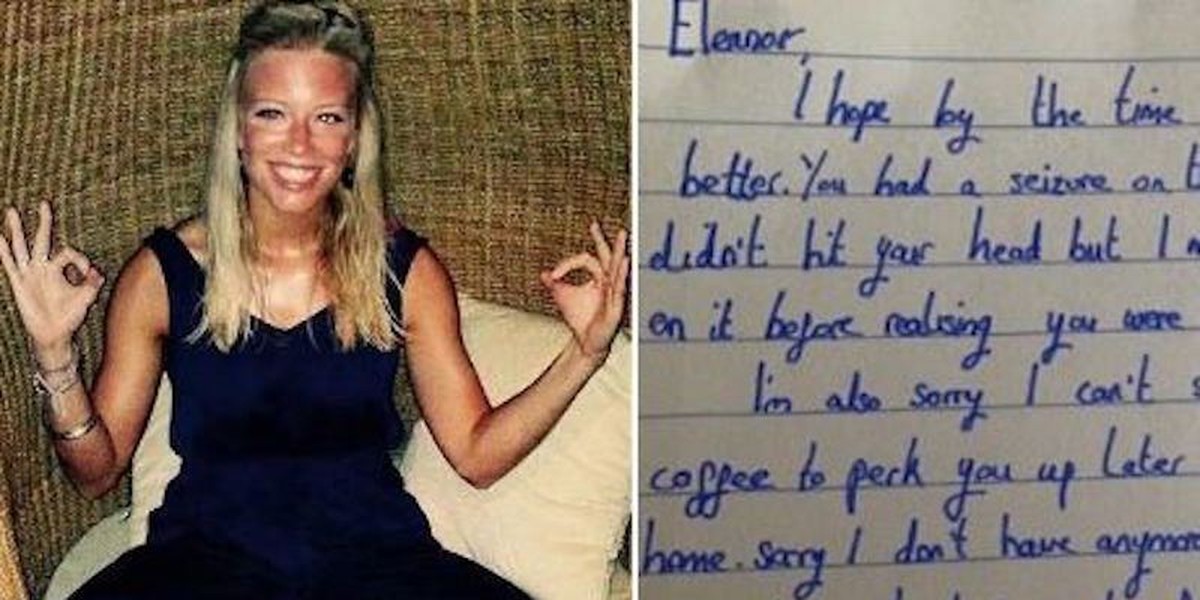 Eleanor,
I hope by the time
better. You had a seizure on
didn't hit your head but I
on it before realising you were
I'm also sorry I can't
coffee to perk you up later
home. Sorry I don't have anymore